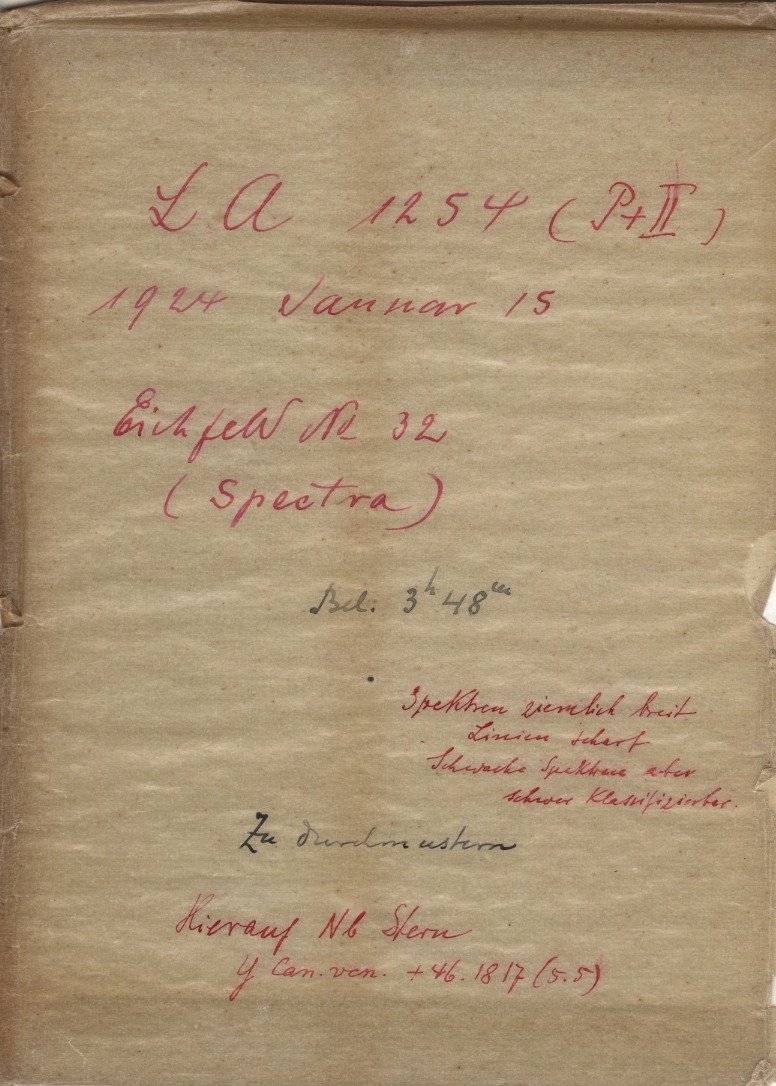 L A 1254 (P+II)
1924 Januar 15
Eichfeld No 32
(Spectra)
Bel. 3h 48m
Spektren ziemlich breit
Linien scharf
Schwache Spektren aber
schwer Klassifizierbar.
Zu durchmustern
Hierauf Nb Stern
Y Can. ven. +46.1817 (5.5)